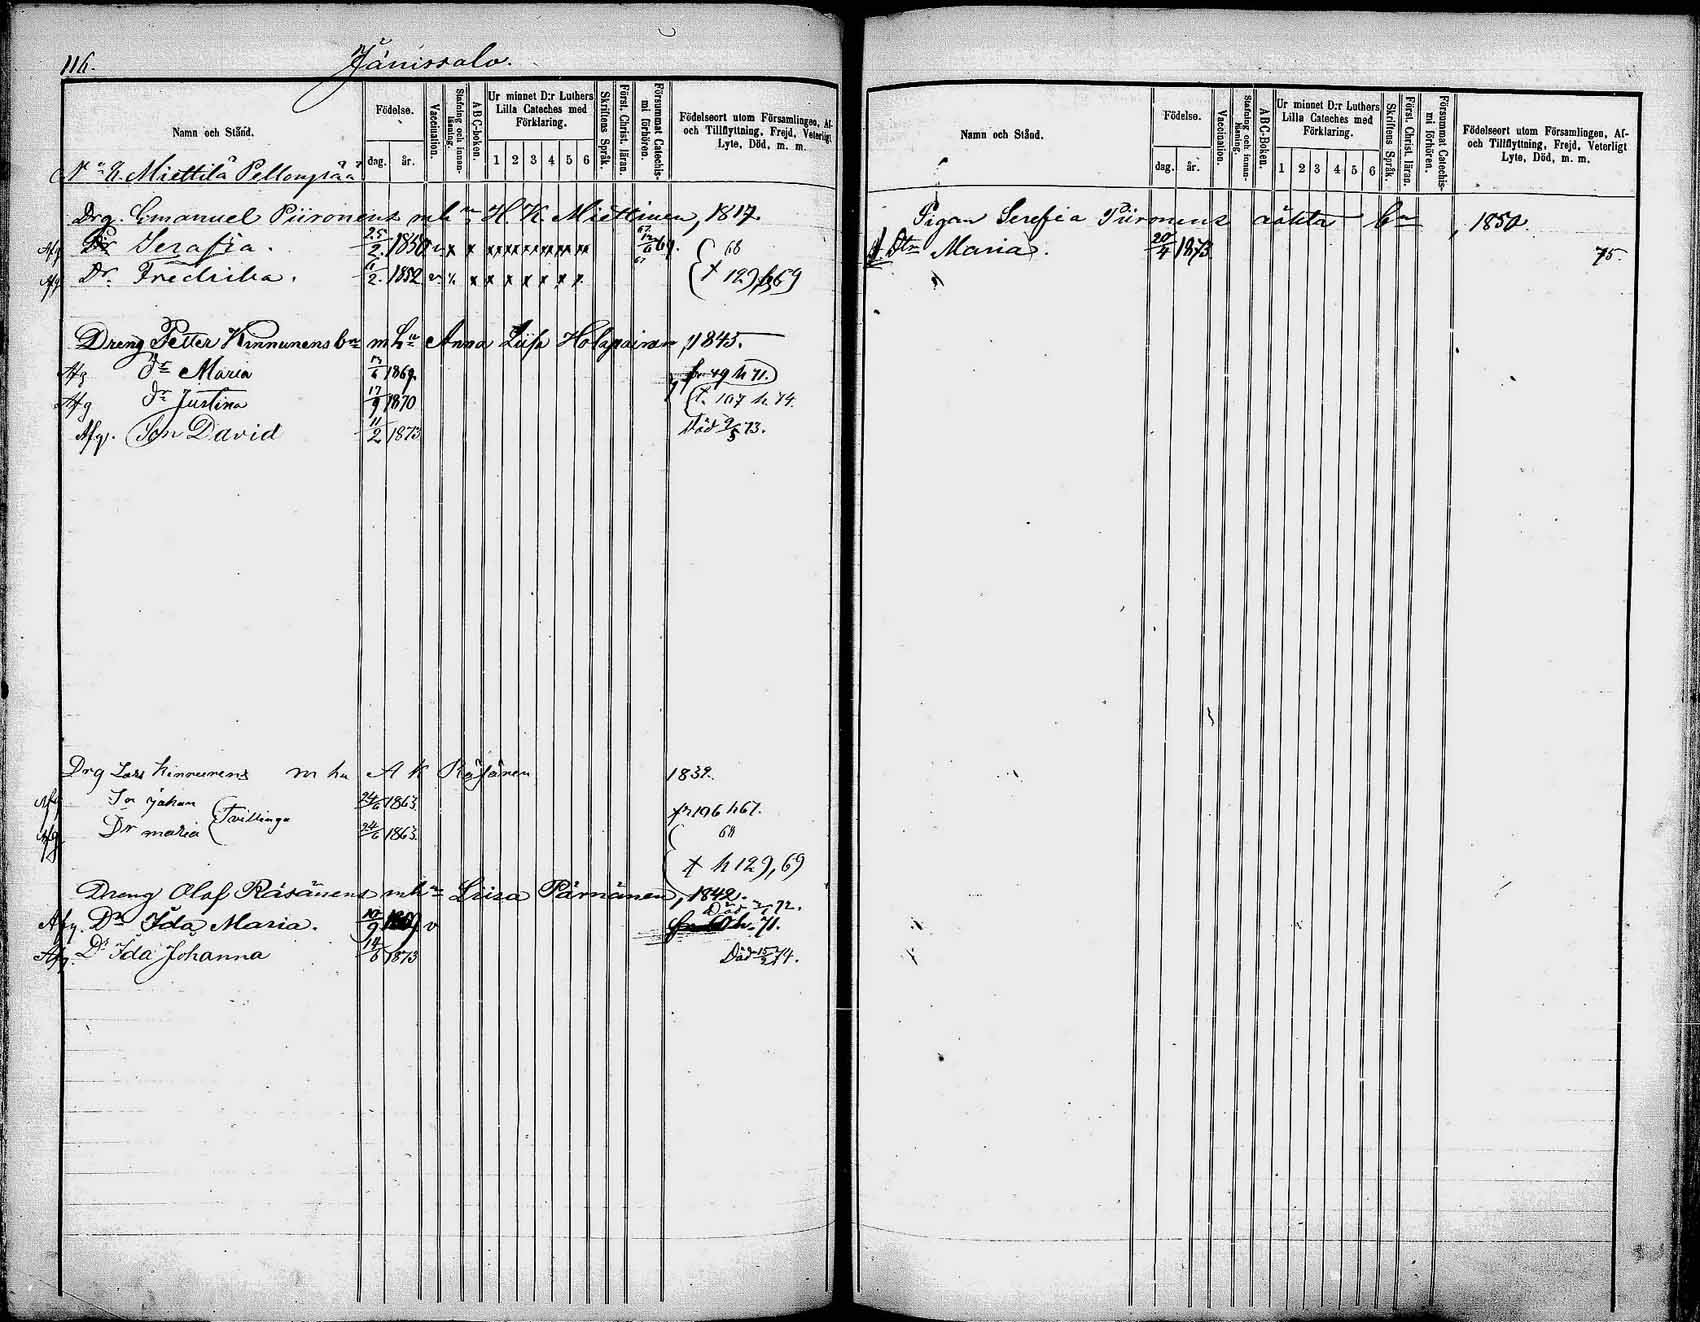 116.
Jänissalo.
Namn och Stånd.
Födelse.
dag.
år.
Vaccination.
Stafning och innan-läsning.
ABC-boken.
Ur minnet D:r Luthers Lilla Cateches med Förklaring.
1 2 3 4 5 6
Skriftens Språk.
Först. Christ. läran.
Försummat Catechis-mi förhören.
Födelseort utom Församlingen, Af- och Tillflyttning, Frejd, Veterligt Lyte, Död, m. m.
Miettilä
Drg. Emanuel Piironens m hu H. K. Miettinen, 1817.
Afg Dr Serafia. 25/2 1850 v x x 68
Afg Dr. Fredrika. 6/2 1852 v. † 129 h 69
Dreng Petter Kinnunens bn m hu Anna Liisa Holopainen, 1845.
Afg dr Maria 1869. fr 49 h 71.
Afg dr Justina 17/9 1870 t. 107 h. 74.
Afg. Son David 11/2 1873 Död 73.
Drg Lars Kinnunens m hu A K Räsänen 1839.
Afg So Johan 24/6 1863 fr 196 h 67.
Tvillinga
Afg Dr maria 24/6 1863. 68
h 129, 69
Dreng Olof Räsänens m hu Liisa Pärnänen, 1842.
Död 72.
Afg. Dr Ida Maria. 10/9 1869 v h. 71.
Afg. Dr Ida Johanna 14/6 1873 Död 15/2 74.
Namn och Stånd.
Födelse.
dag.
år.
Vaccination.
Stafning och innan-läsning.
ABC-Boken.
Ur minnet D:r Luthers Lilla Cateches med Förklaring.
1 2 3 4 5 6
Skriftens Språk.
Först. Christ. läran.
Försummat Catechis-mi förhören.
Födelseort utom Församlingen, Af- och Tillflyttning, Frejd, Veterligt Lyte, Död, m. m.
Pigan Serefia Piironens oäkta bn, 1850.
Dtr Maria. 20/4 1873 75.